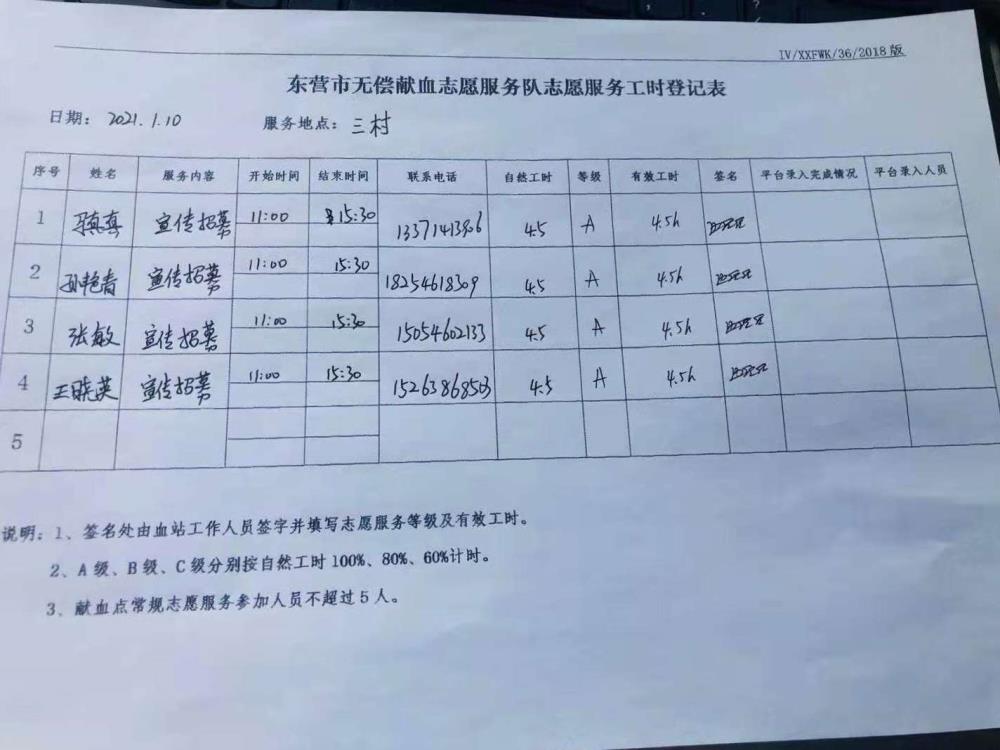 IV/XXFWK/36/2018版
东营市无偿献血志愿服务队志愿服务工时登记表
日期: 2021.1.10 服务地点: 三村
序号 姓名 服务内容 开始时间 结束时间 联系电话 自然工时 等级 有效工时 签名 平台录入完成情况 平台录入人员
1 宣传招募 11:00 15:30 4.5 A 4.5h
2 孙艳青 宣传招募 11:00 15:30 18254618309 4.5 A 4.5h
3 张敏 宣传招募 11:00 15:30 15054602133 4.5 A 4.5h
4 王晓英 宣传招募 11:00 15:30 15263868503 4.5 A 4.5h
5
说明: 1、签名处由血站工作人员签字并填写志愿服务等级及有效工时。
2、A级、B级、C级分别按自然工时100%、80%、60%计时。
3、献血点常规志愿服务参加人员不超过5人。